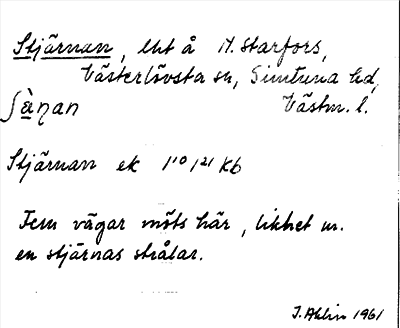 Stjärnan, lht å N. Starfors,
Västerlövsta sn, Simtuna hd,
ʃà̱ṇan Västm. l.
Stjärnan ek 1/10 1/21 Kb
Fem vägar möts här, likhet m.
en stjärnas strålar.
I. Ahlin 1961